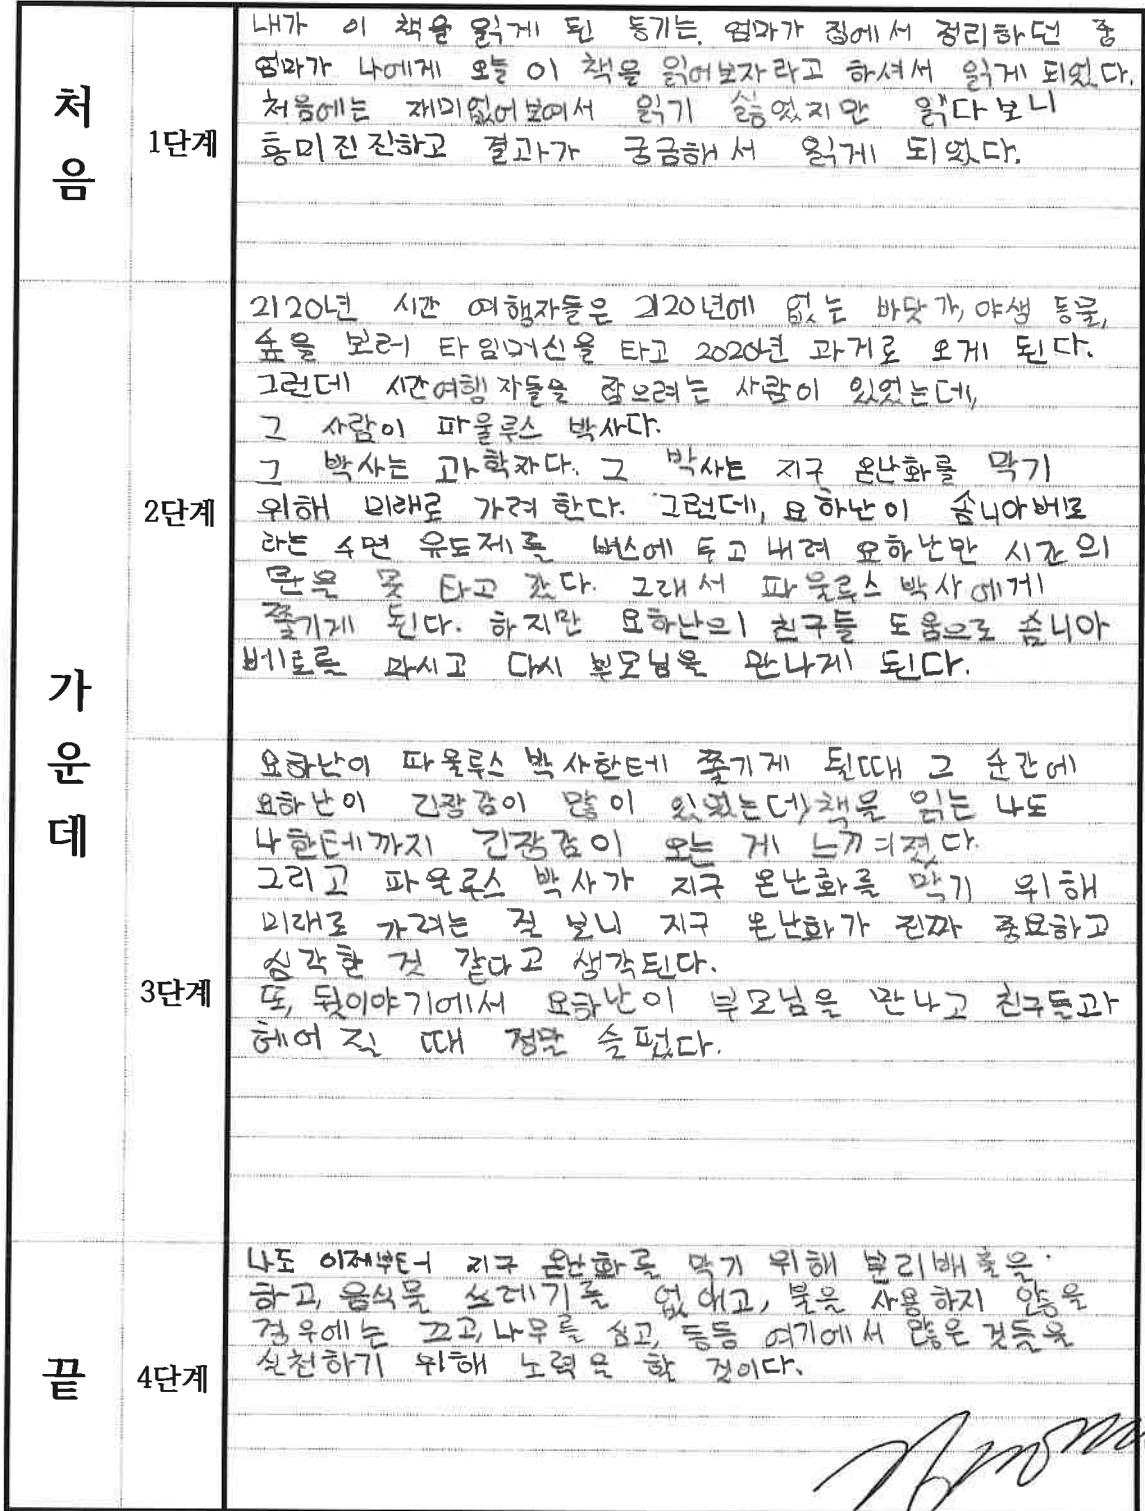 처음
1단계
내가 이 책을 읽게 된 동기는, 엄마가 집에서 정리하던 중
엄마가 나에게 오늘 이 책을 읽어보자라고 하셔서 읽게 되었다.
처음에는 재미없어보여서 읽기 싫었지만 읽다보니
흥미진진하고 결과가 궁금해서 읽게 되었다.
가운데
2단계
2120년 시간 여행자들은 2120년에 없는 바닷가, 야생 동물,
숲을 보러 타임머신을 타고 2020년 과거로 오게 된다.
그런데 시간여행자들을 잡으려는 사람이 있었는데,
그 사람이 파울루스 박사다.
그 박사는 과학자다. 그 박사는 지구 온난화를 막기
위해 미래로 가려 한다. 그런데, 요하난이 솜니아베로
라는 수면 유도제를 버스에 두고 내려 요하난만 시간의
문을 못 타고 갔다. 그래서 파울루스 박사에게
쫓기게 된다. 하지만 요하난의 친구들 도움으로 솜니아
베로를 마시고 다시 부모님을 만나게 된다.
3단계
요하난이 파울루스 박사한테 쫓기게 될때 그 순간에
요하난이 긴장감이 많이 있었는데, 책을 읽는 나도
나한테까지 긴장감이 오는 게 느껴졌다.
그리고 파울루스 박사가 지구 온난화를 막기 위해
미래로 가려는 걸 보니 지구 온난화가 진짜 중요하고
심각한 것 같다고 생각된다.
또, 뒷이야기에서 요하난이 부모님을 만나고 친구들과
헤어질 때 정말 슬펐다.
끝
4단계
나도 이제부터 지구 온난화를 막기 위해 분리배출을
하고, 음식물 쓰레기를 없애고, 불을 사용하지 않을
경우에는 끄고, 나무를 심고, 등등 여기에서 많은 것들을
실천하기 위해 노력을 할 것이다.